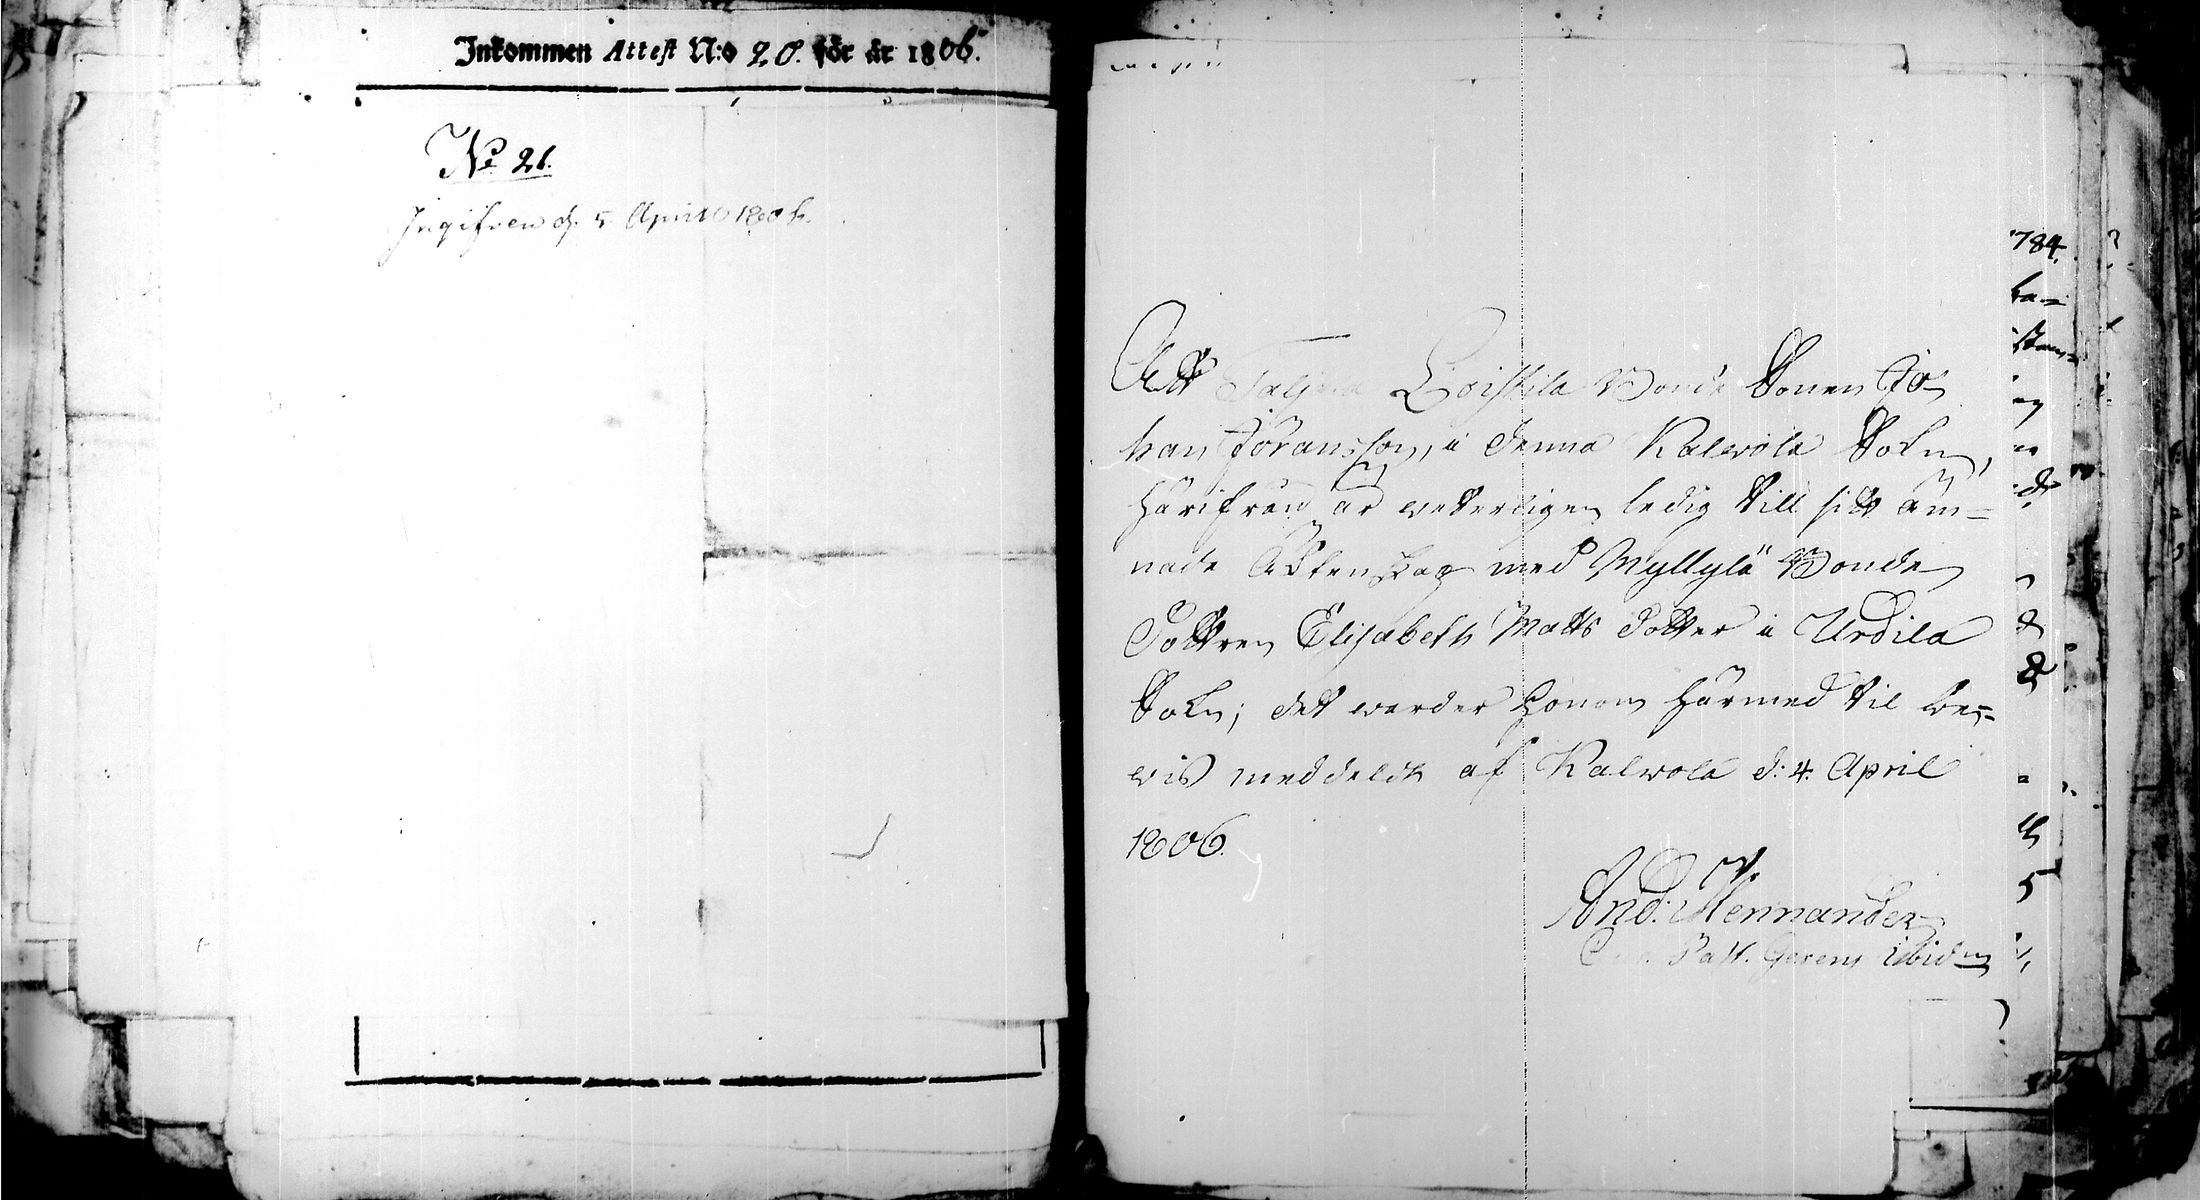 Inkommen Attest N:o 20. för år 1806.
No 21.
Ingifven d. 5 April 1806.
Att Loistila Bonde Sonen Jo=
han Jöransson, i denna Kalwola Sokn,
härifrån är wetterligen ledig till sitt äm=
nade Äktenskap med Myllylä Bonde
Dottren Elisabeth Matts dotter i Urdila
Sokn; det warder honom härmed til be=
wis meddeldt af Kalwola d: 4. April
1806.
And: Mennander
Past. Gerens ibidm
784.